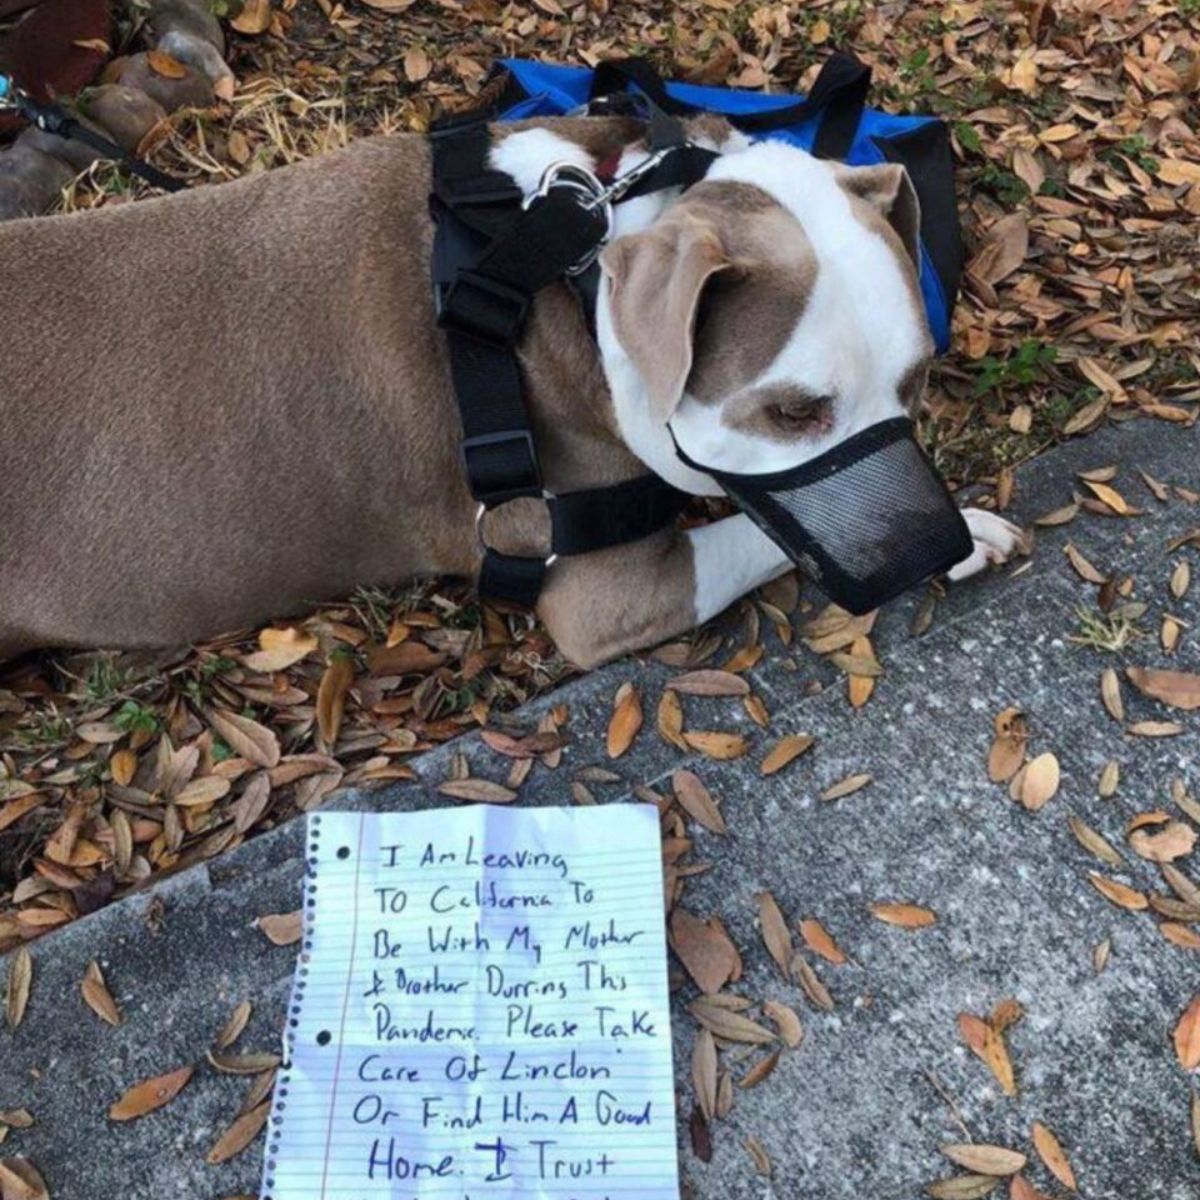 I Am Leaving
TO California To
Be With My Mother
& Brother Durring This
Pandemic. Please Take
Care Of Linclon
Or Find Him A Good
Home. I Trust